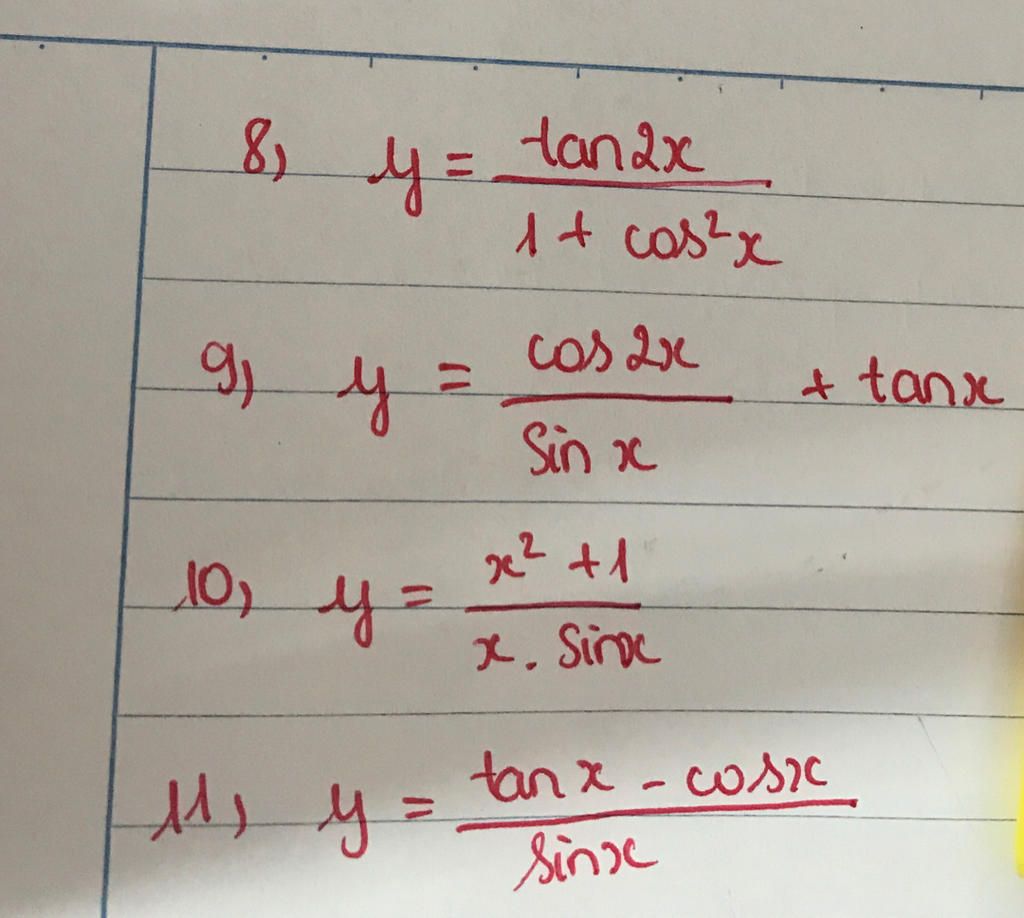 8) y = tan2x / 1 + cos²x
9) y = cos2x / sin x + tanx
10) y = x² + 1 / x . sinx
11) y = tanx - cosx / sinx